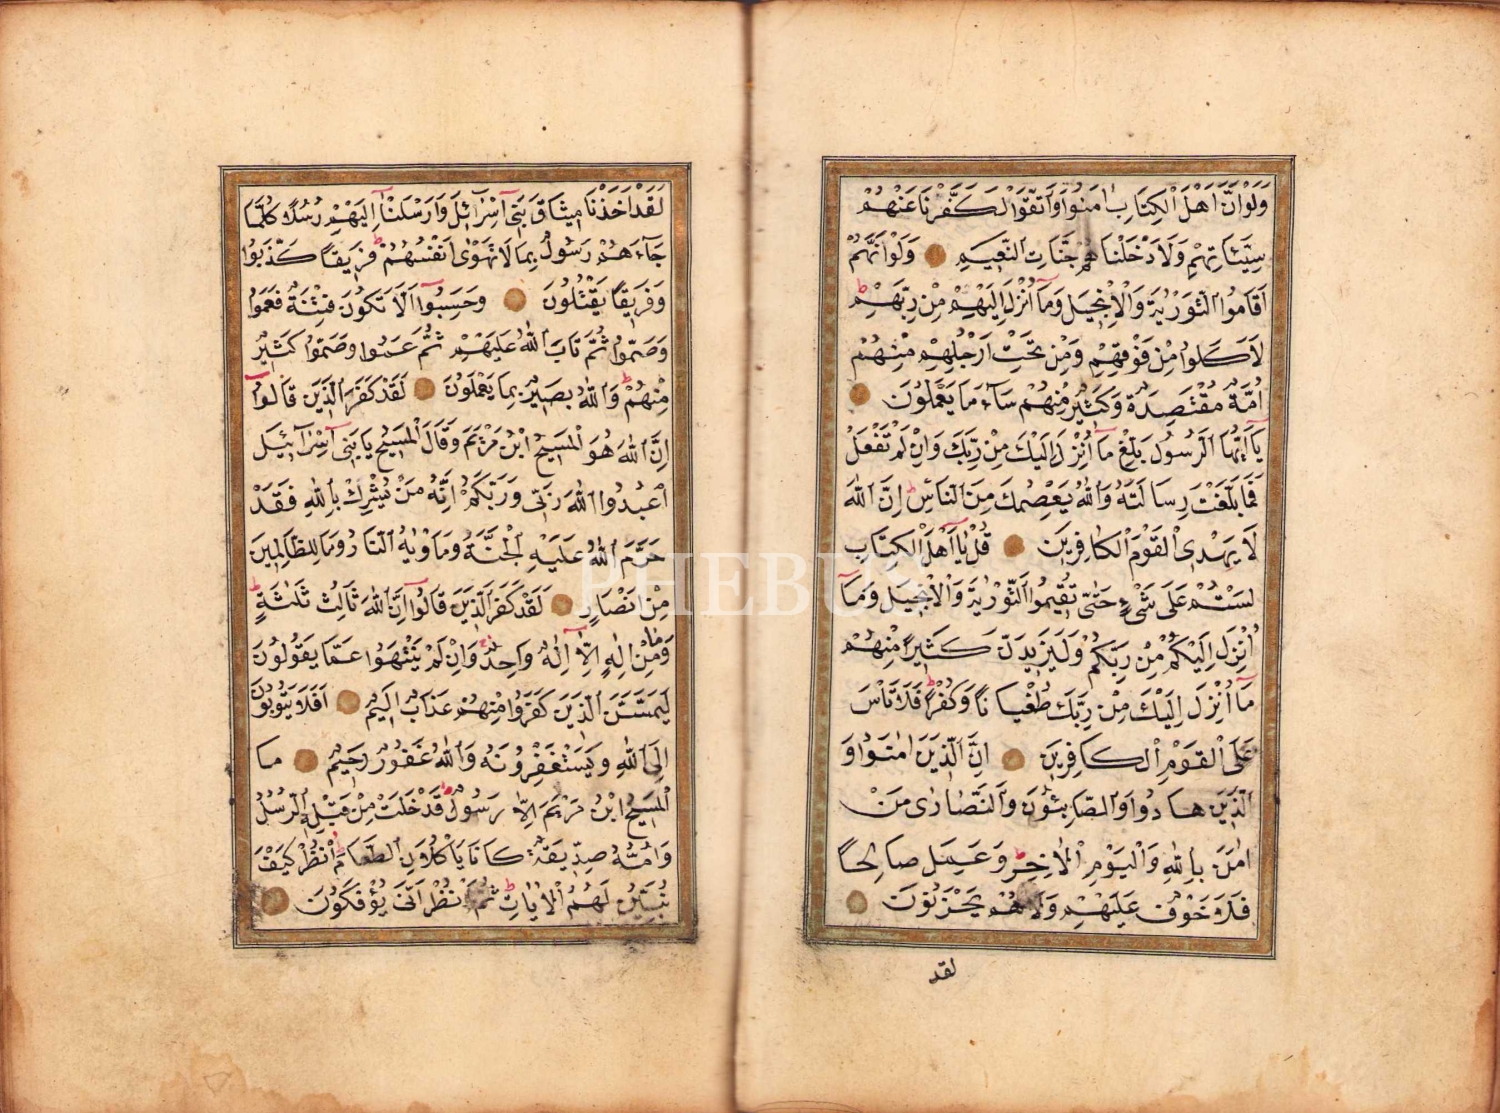 وَلَوْ اَنَّ اَهْلَ الْكِتَابِ اٰمَنُوا وَاتَّقَوْا لَكَفَّرْنَا عَنْهُمْ
سَيِّئَاتِهِمْ وَلَاَدْخَلْنَاهُمْ جَنَّاتِ النَّعِيمِ وَلَوْ اَنَّهُمْ
اَقَامُوا التَّوْرٰيةَ وَالْاِنْجِيلَ وَمَآ اُنْزِلَ اِلَيْهِمْ مِنْ رَبِّهِمْ ط
لَاَكَلُوا مِنْ فَوْقِهِمْ وَمِنْ تَحْتِ اَرْجُلِهِمْ مِنْهُمْ
اُمَّةٌ مُقْتَصِدَةٌ وَكَثِيرٌ مِنْهُمْ سَآءَ مَا يَعْمَلُونَ
يَآ اَيُّهَا الرَّسُولُ بَلِّغْ مَآ اُنْزِلَ اِلَيْكَ مِنْ رَبِّكَ وَاِنْ لَمْ تَفْعَلْ
فَمَا بَلَّغْتَ رِسَالَتَهُ وَاللّٰهُ يَعْصِمُكَ مِنَ النَّاسِ ط اِنَّ اللّٰهَ
لَا يَهْدِى الْقَوْمَ الْكَافِرِينَ قُلْ يَآ اَهْلَ الْكِتَابِ
لَسْتُمْ عَلٰى شَىْءٍ حَتّٰى تُقِيمُوا التَّوْرٰيةَ وَالْاِنْجِيلَ وَمَآ
اُنْزِلَ اِلَيْكُمْ مِنْ رَبِّكُمْ وَلَيَزِيدَنَّ كَثِيرًا مِنْهُمْ
مَآ اُنْزِلَ اِلَيْكَ مِنْ رَبِّكَ طُغْيَانًا وَكُفْرًا ط فَلَا تَأْسَ
عَلَى الْقَوْمِ الْكَافِرِينَ اِنَّ الَّذِينَ اٰمَنُوا وَ
الَّذِينَ هَادُوا وَالصَّابِئُونَ وَالنَّصَارٰى مَنْ
اٰمَنَ بِاللّٰهِ وَالْيَوْمِ الْاٰخِرِ وَعَمِلَ صَالِحًا
فَلَا خَوْفٌ عَلَيْهِمْ وَلَا هُمْ يَحْزَنُونَ
لقد
لَقَدْ اَخَذْنَا مِيثَاقَ بَنِىٓ اِسْرَآئِلَ وَاَرْسَلْنَآ اِلَيْهِمْ رُسُلًا كُلَّمَا
جَآءَهُمْ رَسُولٌ بِمَا لَا تَهْوٰٓى اَنْفُسُهُمْ ط فَرِيقًا كَذَّبُوا
وَفَرِيقًا يَقْتُلُونَ وَحَسِبُوٓا اَلَّا تَكُونَ فِتْنَةٌ فَعَمُوا
وَصَمُّوا ثُمَّ تَابَ اللّٰهُ عَلَيْهِمْ ثُمَّ عَمُوا وَصَمُّوا كَثِيرٌ
مِنْهُمْ ط وَاللّٰهُ بَصِيرٌ بِمَا يَعْمَلُونَ لَقَدْ كَفَرَ الَّذِينَ قَالُوٓا
اِنَّ اللّٰهَ هُوَ الْمَسِيحُ ابْنُ مَرْيَمَ وَقَالَ الْمَسِيحُ يَا بَنِىٓ اِسْرَآئِيلَ
اعْبُدُوا اللّٰهَ رَبِّى وَرَبَّكُمْ اِنَّهُ مَنْ يُشْرِكْ بِاللّٰهِ فَقَدْ
حَرَّمَ اللّٰهُ عَلَيْهِ الْجَنَّةَ وَمَأْوٰيهُ النَّارُ وَمَا لِلظَّالِمِينَ
مِنْ اَنْصَارٍ لَقَدْ كَفَرَ الَّذِينَ قَالُوٓا اِنَّ اللّٰهَ ثَالِثُ ثَلٰثَةٍ ط
وَمَا مِنْ اِلٰهٍ اِلَّآ اِلٰهٌ وَاحِدٌ ط وَاِنْ لَمْ يَنْتَهُوا عَمَّا يَقُولُونَ
لَيَمَسَّنَّ الَّذِينَ كَفَرُوا مِنْهُمْ عَذَابٌ اَلِيمٌ اَفَلَا يَتُوبُونَ
اِلَى اللّٰهِ وَيَسْتَغْفِرُونَهُ وَاللّٰهُ غَفُورٌ رَحِيمٌ مَا
الْمَسِيحُ ابْنُ مَرْيَمَ اِلَّا رَسُولٌ قَدْ خَلَتْ مِنْ قَبْلِهِ الرُّسُلُ
وَاُمُّهُ صِدِّيقَةٌ كَانَا يَأْكُلَانِ الطَّعَامَ ط اُنْظُرْ كَيْفَ
نُبَيِّنُ لَهُمُ الْاٰيَاتِ ثُمَّ انْظُرْ اَنّٰى يُؤْفَكُونَ
PHEBUS